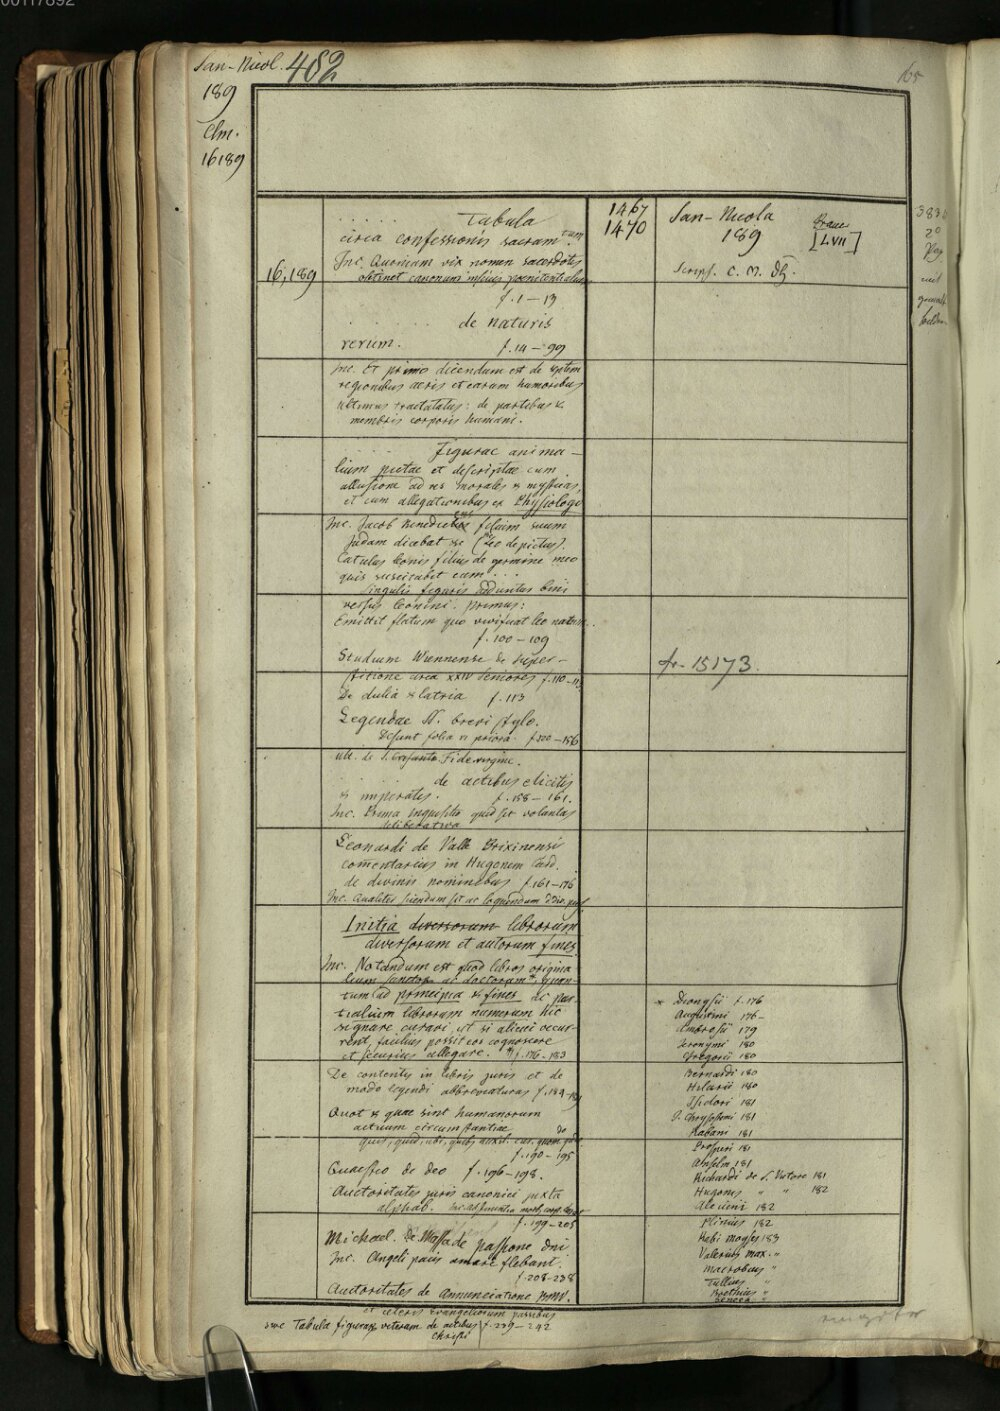 00117892
San-Nicol. 482
189
Clm.
16189
165
16,189
Tabula
circa confessionis sacramtum.
Inc. Quoniam vix nomen sacerdotis
obtinet canonum inscius poenitentialium
f. 1-13
de naturis
rerum. f. 14-99
Inc. Et primo dicendum est de septem
regionibus aeris et earum humoribus
ultimus tractatus: de partibus &
membris corporis humani.
figurae anima-
lium pictae et descriptae cum
allusione ad res morales & mysticas,
et cum allegationibus ex Physiologo
Inc. Jacob benedicens filium suum
Judam dicebat &c (Leo depictus).
Catulus leonis filius de germine meo
quis suscitabit eum...
singulis figuris adduntur bini
versus leonini. primus:
Emittit flatum quo vivificat leo natum..
f. 100-109
Studium Wiennense de super-
stitione circa XXIV seniores f. 110-113
De dulia & latria f. 113
Legendae SS. brevi stylo.
Desunt folia VI priora. f. 120-156
ult. de S. Fide virgine.
de actibus elicitis
& imperatis. f. 158-161.
Inc. Prima inquisitio quid sit voluntas
deliberativa
Leonardi de Valle Brixinensi
comentarius in Hugonem Card.
de divinis nominibus f. 161-176
Inc. Qualiter sciendum sit ac loquendum
Initia diversorum librorum
diversorum et autorum fines
Inc. Notandum est quod libros origina
lium sanctor. ac doctorum* quan-
tum ad principia & fines ac par-
tialium librorum numerum hic
signare curavi, ut si alicui occur-
rent, facilius possit eos cognoscere
et securius allegare. f. 176-183
De contentis in libris juris et de
modo legendi abbreviaturas f. 184-189
Quot & quae sint humanorum
actuum circumstantiae
quis, quid, ubi, quibus auxil. cur, quom.
f. 190-195
Quaestio de deo f. 196-198.
Auctoritates juris canonici juxta
alphab.
f. 199-205
Michael de Massa de passione dni
Inc. Angeli pacis amare flebant.
f. 208-238
Auctoritates de Annunciatione BMV.
et ceteris Evangeliorum passibus
sive Tabula figurar. veterum de actibus f. 239-242
Christi
1467
1470
San-Nicola
189
[LVII]
Script. C. M.
fr. 15173.
* Dionysii f. 176
Augustini 176-
Ambrosii 179
Jeronymi 180
Gregorii 180
Bernardi 180
Hilarii 180
Isidori 181
J. Chrysostomi 181
Rabani 181
Prosperi 181
Anselm. 181
Richardi de S. Victore 181
Hugonis " " 182
Alexieni 182
Plinius 182
Rabi Moyses 183
Valerius max. "
Macrobius "
Tullius "
Boethius "
Seneca "
383
2°